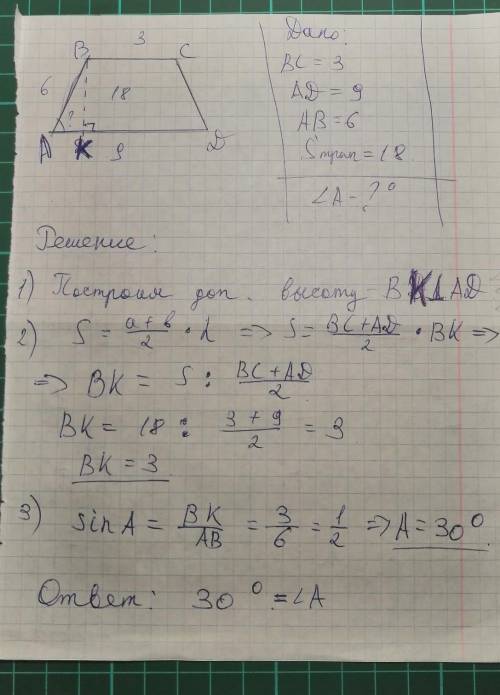 B 3 C
6 18
?
A K 9 D
Дано:
BC = 3
AD = 9
AB = 6
Sтрап = 18
∠A - ?°
Решение:
1) Построим доп. высоту BK⊥AD
2) S = a+b/2 · h => S = BC+AD/2 · BK =>
=> BK = S : BC+AD/2
BK = 18 : 3+9/2 = 3
BK = 3
3) sin A = BK/AB = 3/6 = 1/2 => A = 30°
Ответ: 30° = ∠A